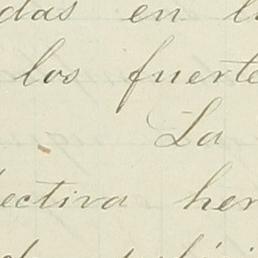 das en l
los fuerte
La
lectiva her